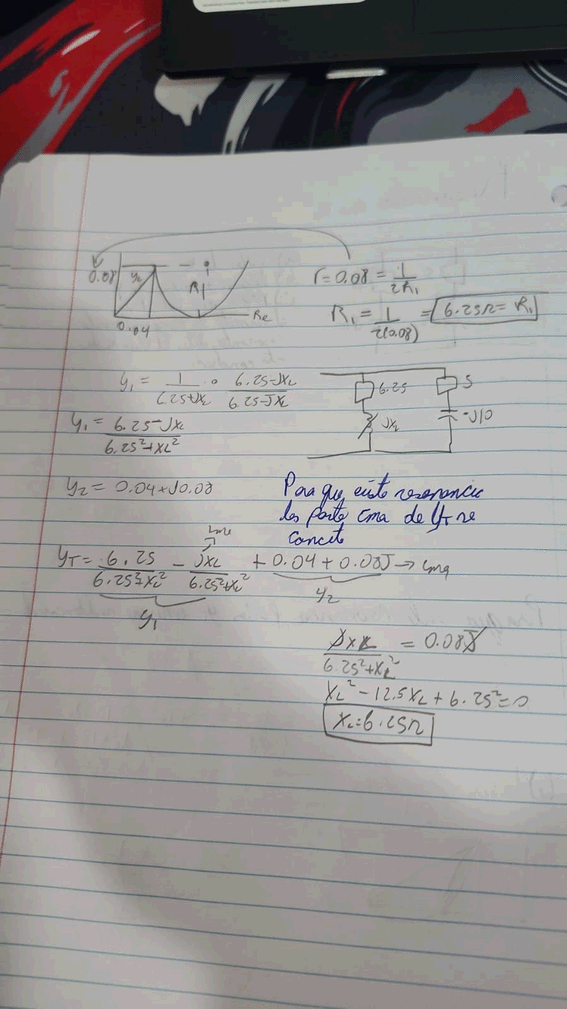 0.08 y₂
R₁
Re
0.04
r = 0.08 = 1/(2R₁)
R₁ = 1/(2(0.08)) = 6.25Ω = R₁
y₁ = 1/(6.25+jXL) • (6.25-jXL)/(6.25-jXL)
6.25 5
jXL -j10
y₁ = (6.25-jXL)/(6.25²+XL²)
y₂ = 0.04+j0.08
Para que exista resonancia
la parte ima de YT se
cancele
YT = 6.25/(6.25²+XL²) - jXL/(6.25²+XL²) + 0.04 + 0.08J → ima
y₁ y₂
jXL/(6.25²+XL²) = 0.08J
XL² - 12.5XL + 6.25² = 0
XL = 6.25Ω